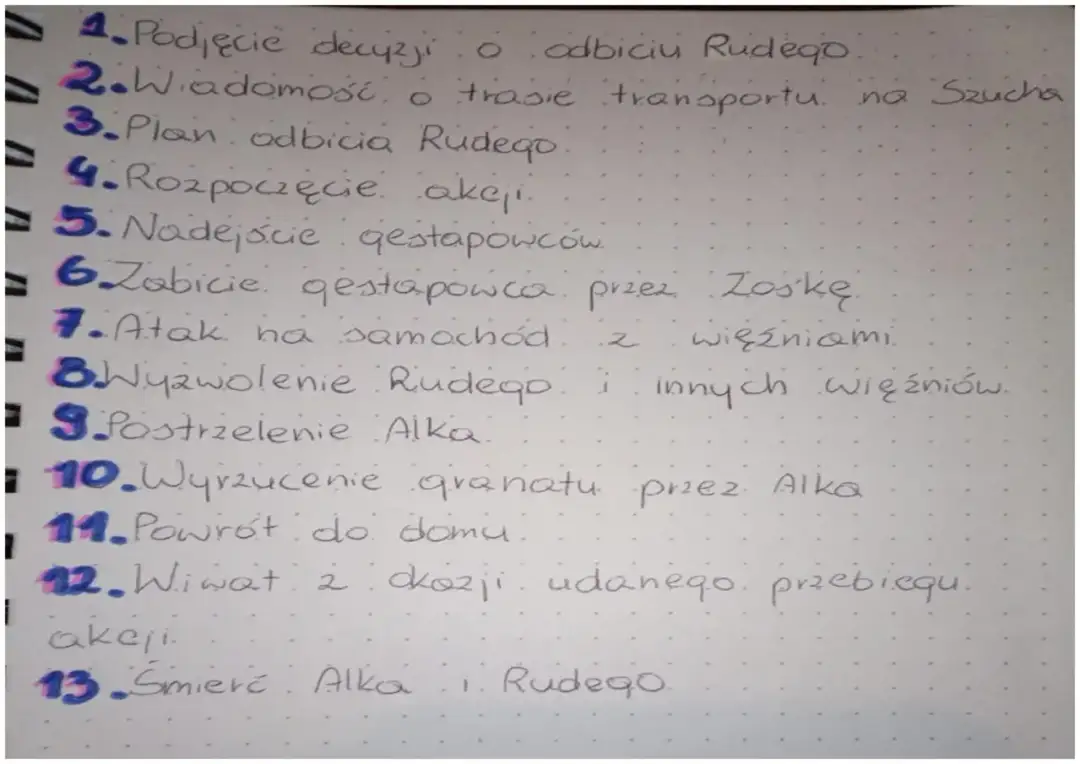 1. Podjęcie decyzji o odbiciu Rudego.
2. Wiadomość o trasie transportu na Szucha
3. Plan odbicia Rudego.
4. Rozpoczęcie akcji.
5. Nadejście gestapowców.
6. Zabicie gestapowca przez Zośkę.
7. Atak na samochód z więźniami.
8. Wyzwolenie Rudego i innych więźniów.
9. Postrzelenie Alka.
10. Wyrzucenie granatu przez Alka
11. Powrót do domu.
12. Wiwat z okazji udanego przebiegu
akcji.
13. Śmierć Alka i Rudego